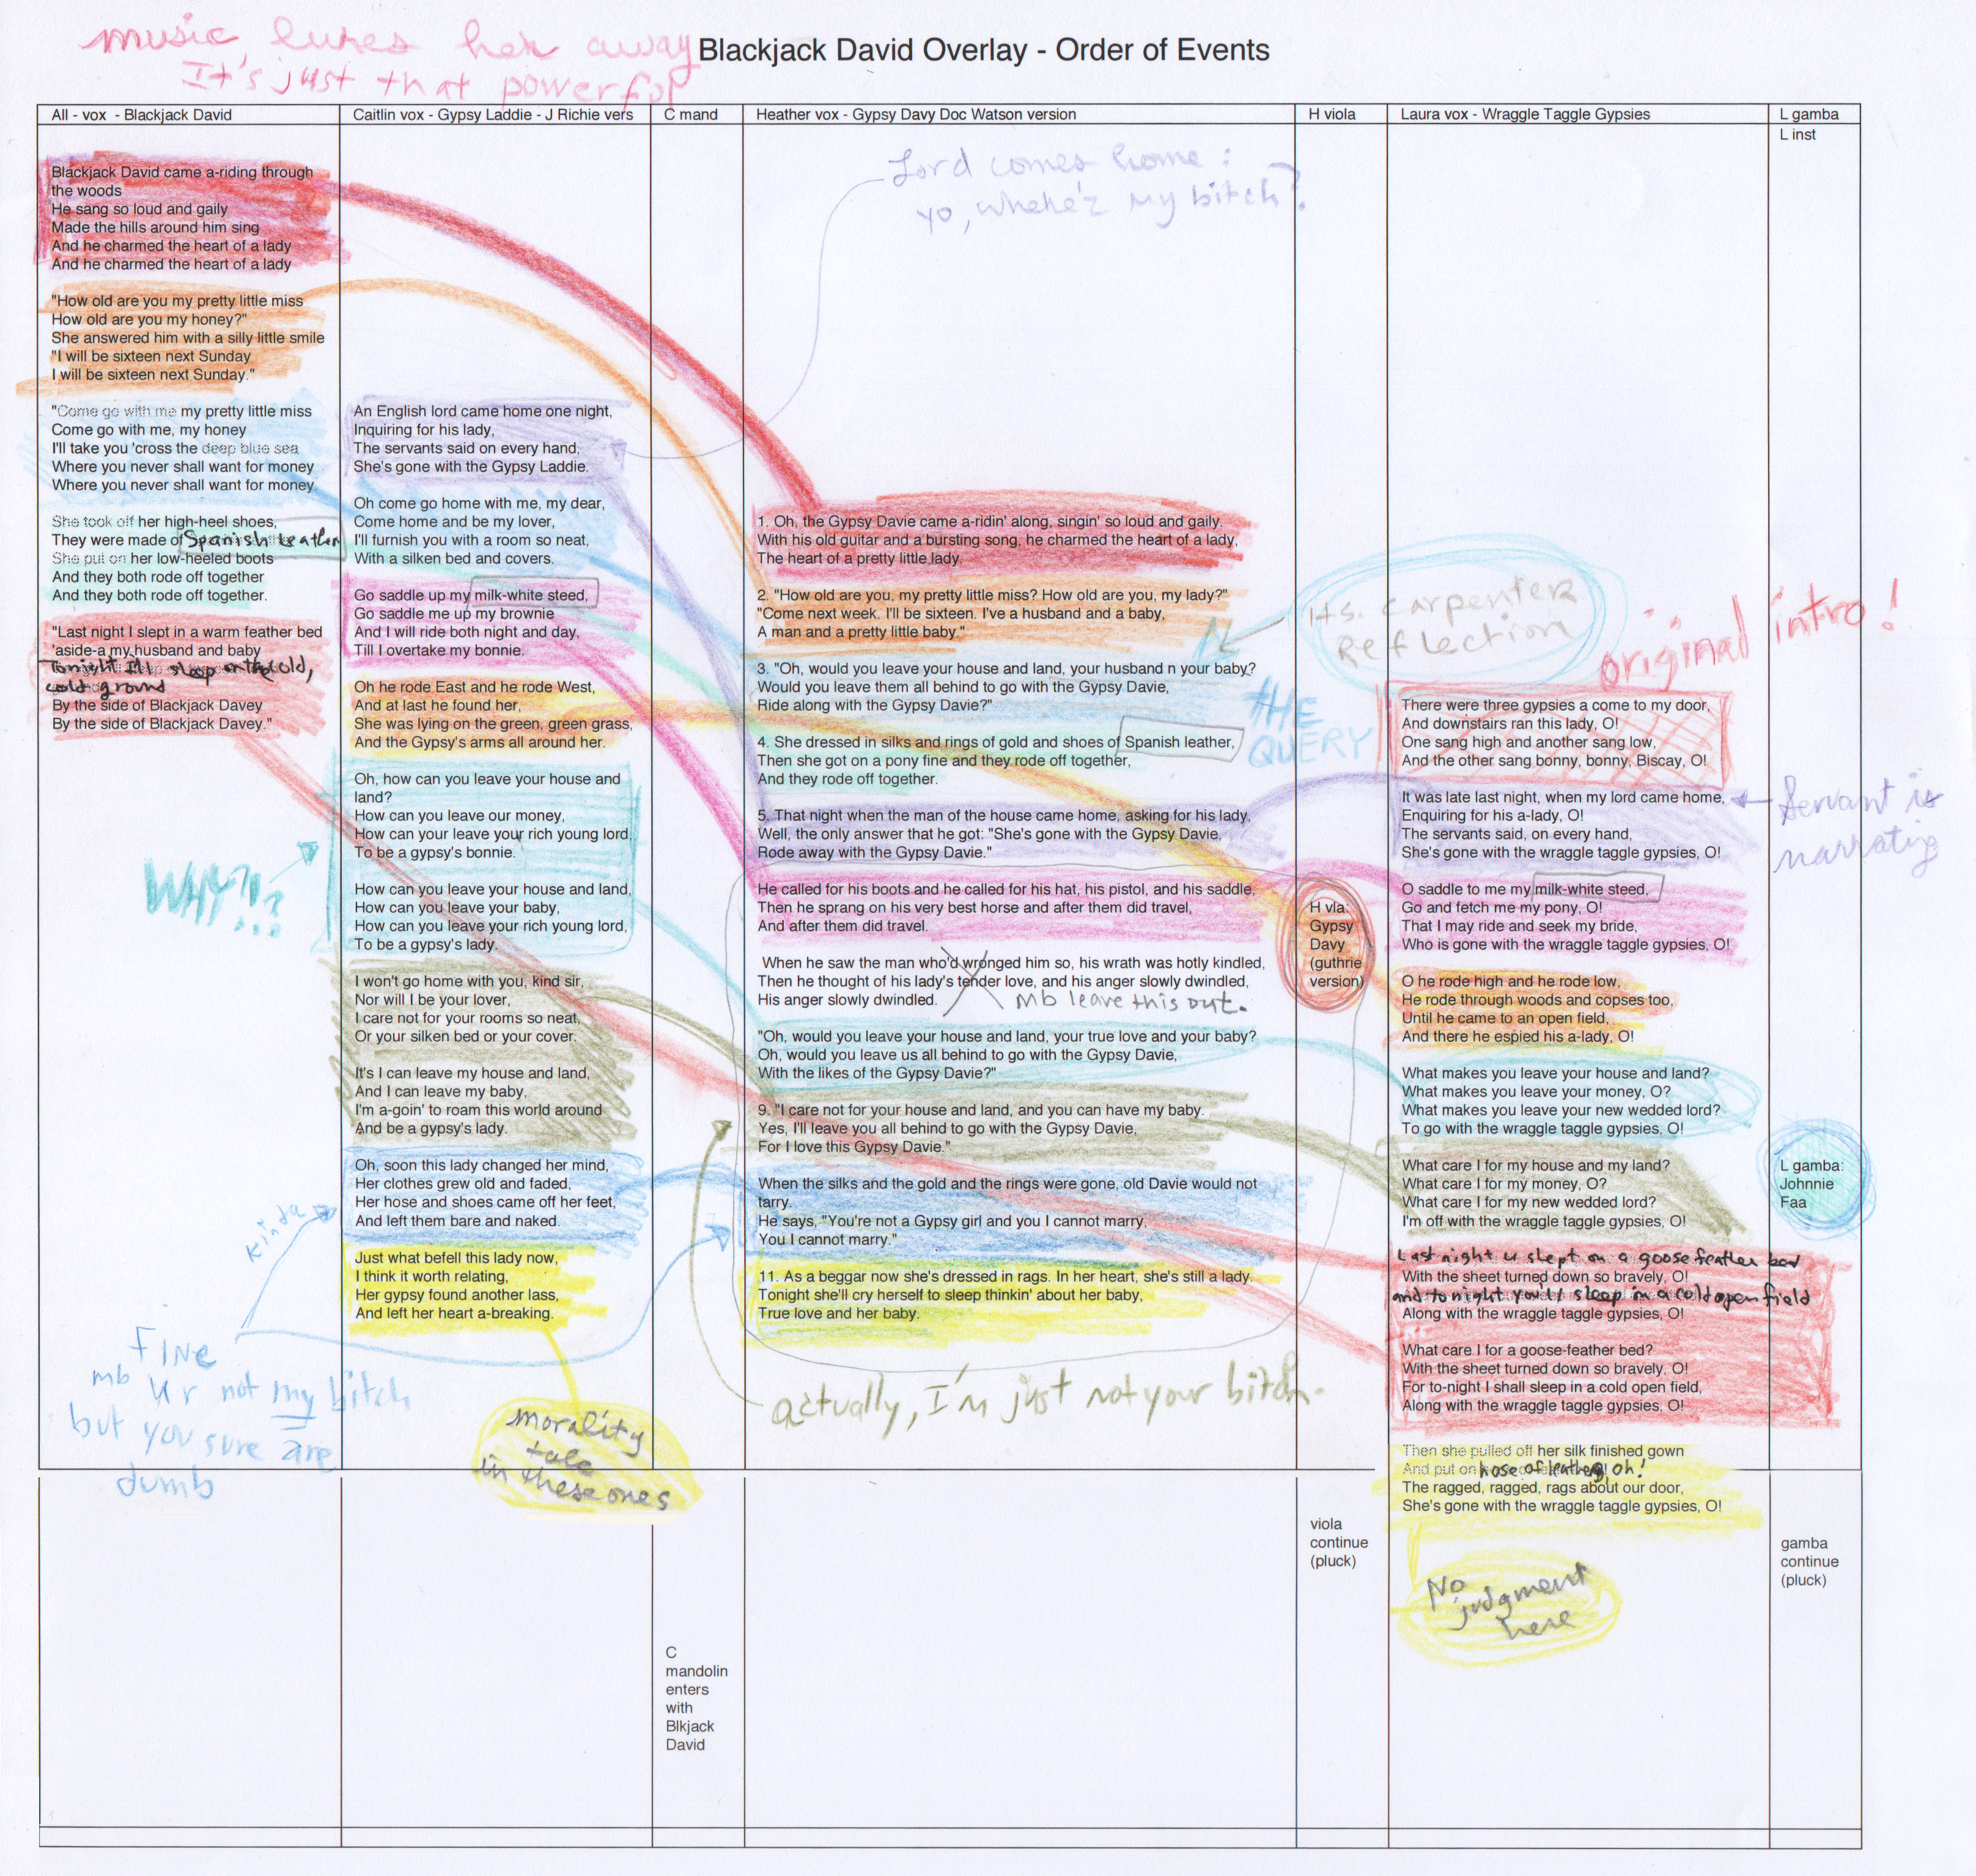 music lures her away
It's just that powerful
Blackjack David Overlay - Order of Events
All - vox - Blackjack David
Caitlin vox - Gypsy Laddie - J Richie vers
C mand
Heather vox - Gypsy Davy Doc Watson version
H viola
Laura vox - Wraggle Taggle Gypsies
L gamba
L inst
Blackjack David came a-riding through
the woods
He sang so loud and gaily
Made the hills around him sing
And he charmed the heart of a lady
And he charmed the heart of a lady
"How old are you my pretty little miss
How old are you my honey?"
She answered him with a silly little smile
"I will be sixteen next Sunday
I will be sixteen next Sunday."
"Come go with me my pretty little miss
Come go with me, my honey
I'll take you 'cross the deep blue sea
Where you never shall want for money
Where you never shall want for money
She took off her high-heel shoes,
They were made of Spanish Leather
She put on her low-heeled boots
And they both rode off together
And they both rode off together.
"Last night I slept in a warm feather bed
'aside-a my husband and baby
Tonight I'll sleep on the cold,
cold ground
By the side of Blackjack Davey
By the side of Blackjack Davey."
WHY?!?
kinda
FINE
mb ur not my bitch
but you sure are
dumb
An English lord came home one night,
Inquiring for his lady,
The servants said on every hand,
She's gone with the Gypsy Laddie.
Oh come go home with me, my dear,
Come home and be my lover,
I'll furnish you with a room so neat,
With a silken bed and covers.
Go saddle up my milk-white steed,
Go saddle me up my brownie
And I will ride both night and day,
Till I overtake my bonnie.
Oh he rode East and he rode West,
And at last he found her,
She was lying on the green, green grass,
And the Gypsy's arms all around her.
Oh, how can you leave your house and
land?
How can you leave our money,
How can your leave your rich young lord,
To be a gypsy's bonnie.
How can you leave your house and land,
How can you leave your baby,
How can you leave your rich young lord,
To be a gypsy's lady.
I won't go home with you, kind sir,
Nor will I be your lover,
I care not for your rooms so neat,
Or your silken bed or your cover.
It's I can leave my house and land,
And I can leave my baby,
I'm a-goin' to roam this world around
And be a gypsy's lady.
Oh, soon this lady changed her mind,
Her clothes grew old and faded,
Her hose and shoes came off her feet,
And left them bare and naked.
Just what befell this lady now,
I think it worth relating,
Her gypsy found another lass,
And left her heart a-breaking.
morality
tale
in these ones
C
mandolin
enters
with
Blkjack
David
Lord comes home:
yo, where'z my bitch?
1. Oh, the Gypsy Davie came a-ridin' along, singin' so loud and gaily,
With his old guitar and a bursting song, he charmed the heart of a lady,
The heart of a pretty little lady.
2. "How old are you, my pretty little miss? How old are you, my lady?"
"Come next week. I'll be sixteen. I've a husband and a baby,
A man and a pretty little baby."
3. "Oh, would you leave your house and land, your husband n your baby?
Would you leave them all behind to go with the Gypsy Davie,
Ride along with the Gypsy Davie?"
4. She dressed in silks and rings of gold and shoes of Spanish leather,
Then she got on a pony fine and they rode off together,
And they rode off together.
5. That night when the man of the house came home, asking for his lady,
Well, the only answer that he got: "She's gone with the Gypsy Davie,
Rode away with the Gypsy Davie."
He called for his boots and he called for his hat, his pistol, and his saddle,
Then he sprang on his very best horse and after them did travel,
And after them did travel.
When he saw the man who'd wronged him so, his wrath was hotly kindled,
Then he thought of his lady's tender love, and his anger slowly dwindled,
His anger slowly dwindled.
mb leave this out.
"Oh, would you leave your house and land, your true love and your baby?
Oh, would you leave us all behind to go with the Gypsy Davie,
With the likes of the Gypsy Davie?"
9. "I care not for your house and land, and you can have my baby.
Yes, I'll leave you all behind to go with the Gypsy Davie,
For I love this Gypsy Davie."
When the silks and the gold and the rings were gone, old Davie would not
tarry.
He says, "You're not a Gypsy girl and you I cannot marry,
You I cannot marry."
11. As a beggar now she's dressed in rags. In her heart, she's still a lady.
Tonight she'll cry herself to sleep thinkin' about her baby,
True love and her baby.
actually, I'm just not your bitch.
Hs. carpenter
Reflection
THE
QUERY
H vla:
Gypsy
Davy
(guthrie
version)
viola
continue
(pluck)
original intro!
There were three gypsies a come to my door,
And downstairs ran this lady, O!
One sang high and another sang low,
And the other sang bonny, bonny, Biscay, O!
It was late last night, when my lord came home,
Enquiring for his a-lady, O!
The servants said, on every hand,
She's gone with the wraggle taggle gypsies, O!
Servant is
narrating
O saddle to me my milk-white steed,
Go and fetch me my pony, O!
That I may ride and seek my bride,
Who is gone with the wraggle taggle gypsies, O!
O he rode high and he rode low,
He rode through woods and copses too,
Until he came to an open field,
And there he espied his a-lady, O!
What makes you leave your house and land?
What makes you leave your money, O?
What makes you leave your new wedded lord?
To go with the wraggle taggle gypsies, O!
What care I for my house and my land?
What care I for my money, O?
What care I for my new wedded lord?
I'm off with the wraggle taggle gypsies, O!
Last night u slept on a goose feather bed
With the sheet turned down so bravely, O!
and tonight you'll sleep in a cold open field
Along with the wraggle taggle gypsies, O!
What care I for a goose-feather bed?
With the sheet turned down so bravely, O!
For to-night I shall sleep in a cold open field,
Along with the wraggle taggle gypsies, O!
Then she pulled off her silk finished gown
And put on hose of leather, oh!
The ragged, ragged, rags about our door,
She's gone with the wraggle taggle gypsies, O!
No
judgment
here
L gamba:
Johnnie
Faa
gamba
continue
(pluck)